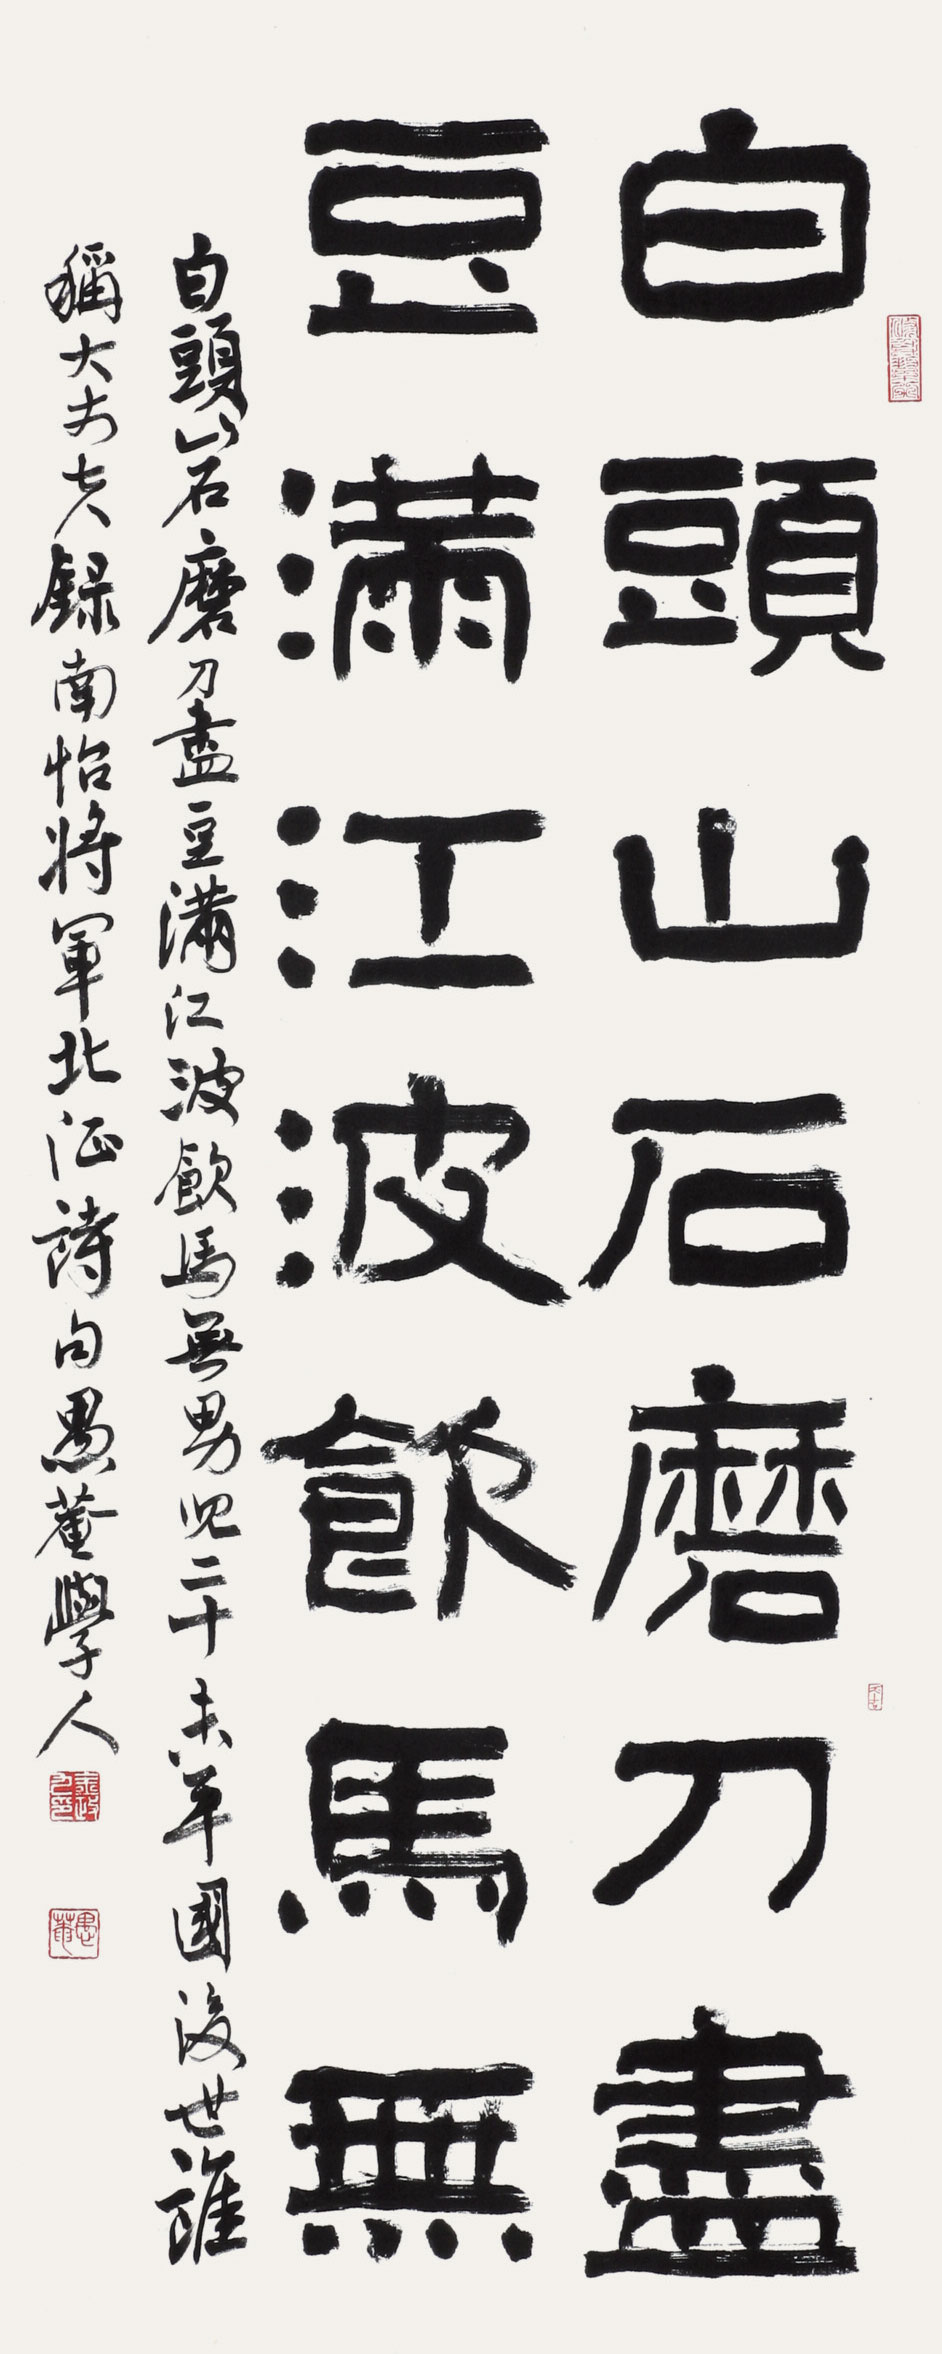 白頭山石磨刀盡
豆滿江波飮馬無
白頭山石磨刀盡豆滿江波飮馬無男兒二十未平國後世誰
稱大丈夫 錄南怡將軍北征詩句 愚菴學人